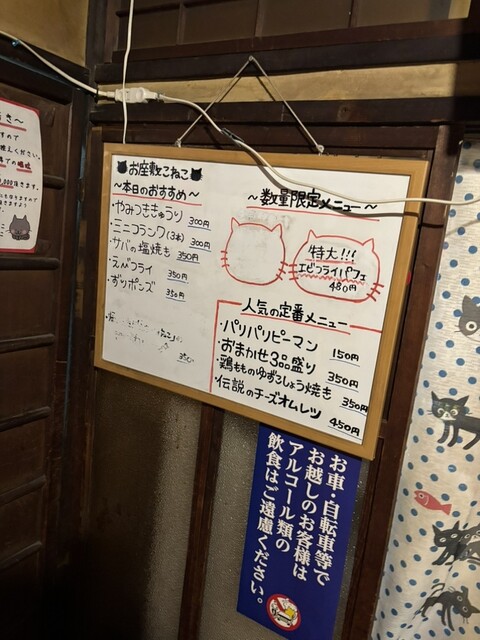 お座敷こねこ
～本日のおすすめ～
・やみつききゅうり 300円
・ミニフランク(3本) 300円
・サバの塩焼き 350円
・えびフライ 350円
・ずりポンズ 350円
350
～数量限定メニュー～
特大!!!
エビフライパフェ
480円
人気の定番メニュー
・パリパリピーマン 150円
・おまかせ3品盛り 350円
・鶏もものゆずこしょう焼き 350円
・伝説のチーズオムレツ 450円
お車・自転車等で
お越しのお客様は
アルコール類の
飲食はご遠慮ください。